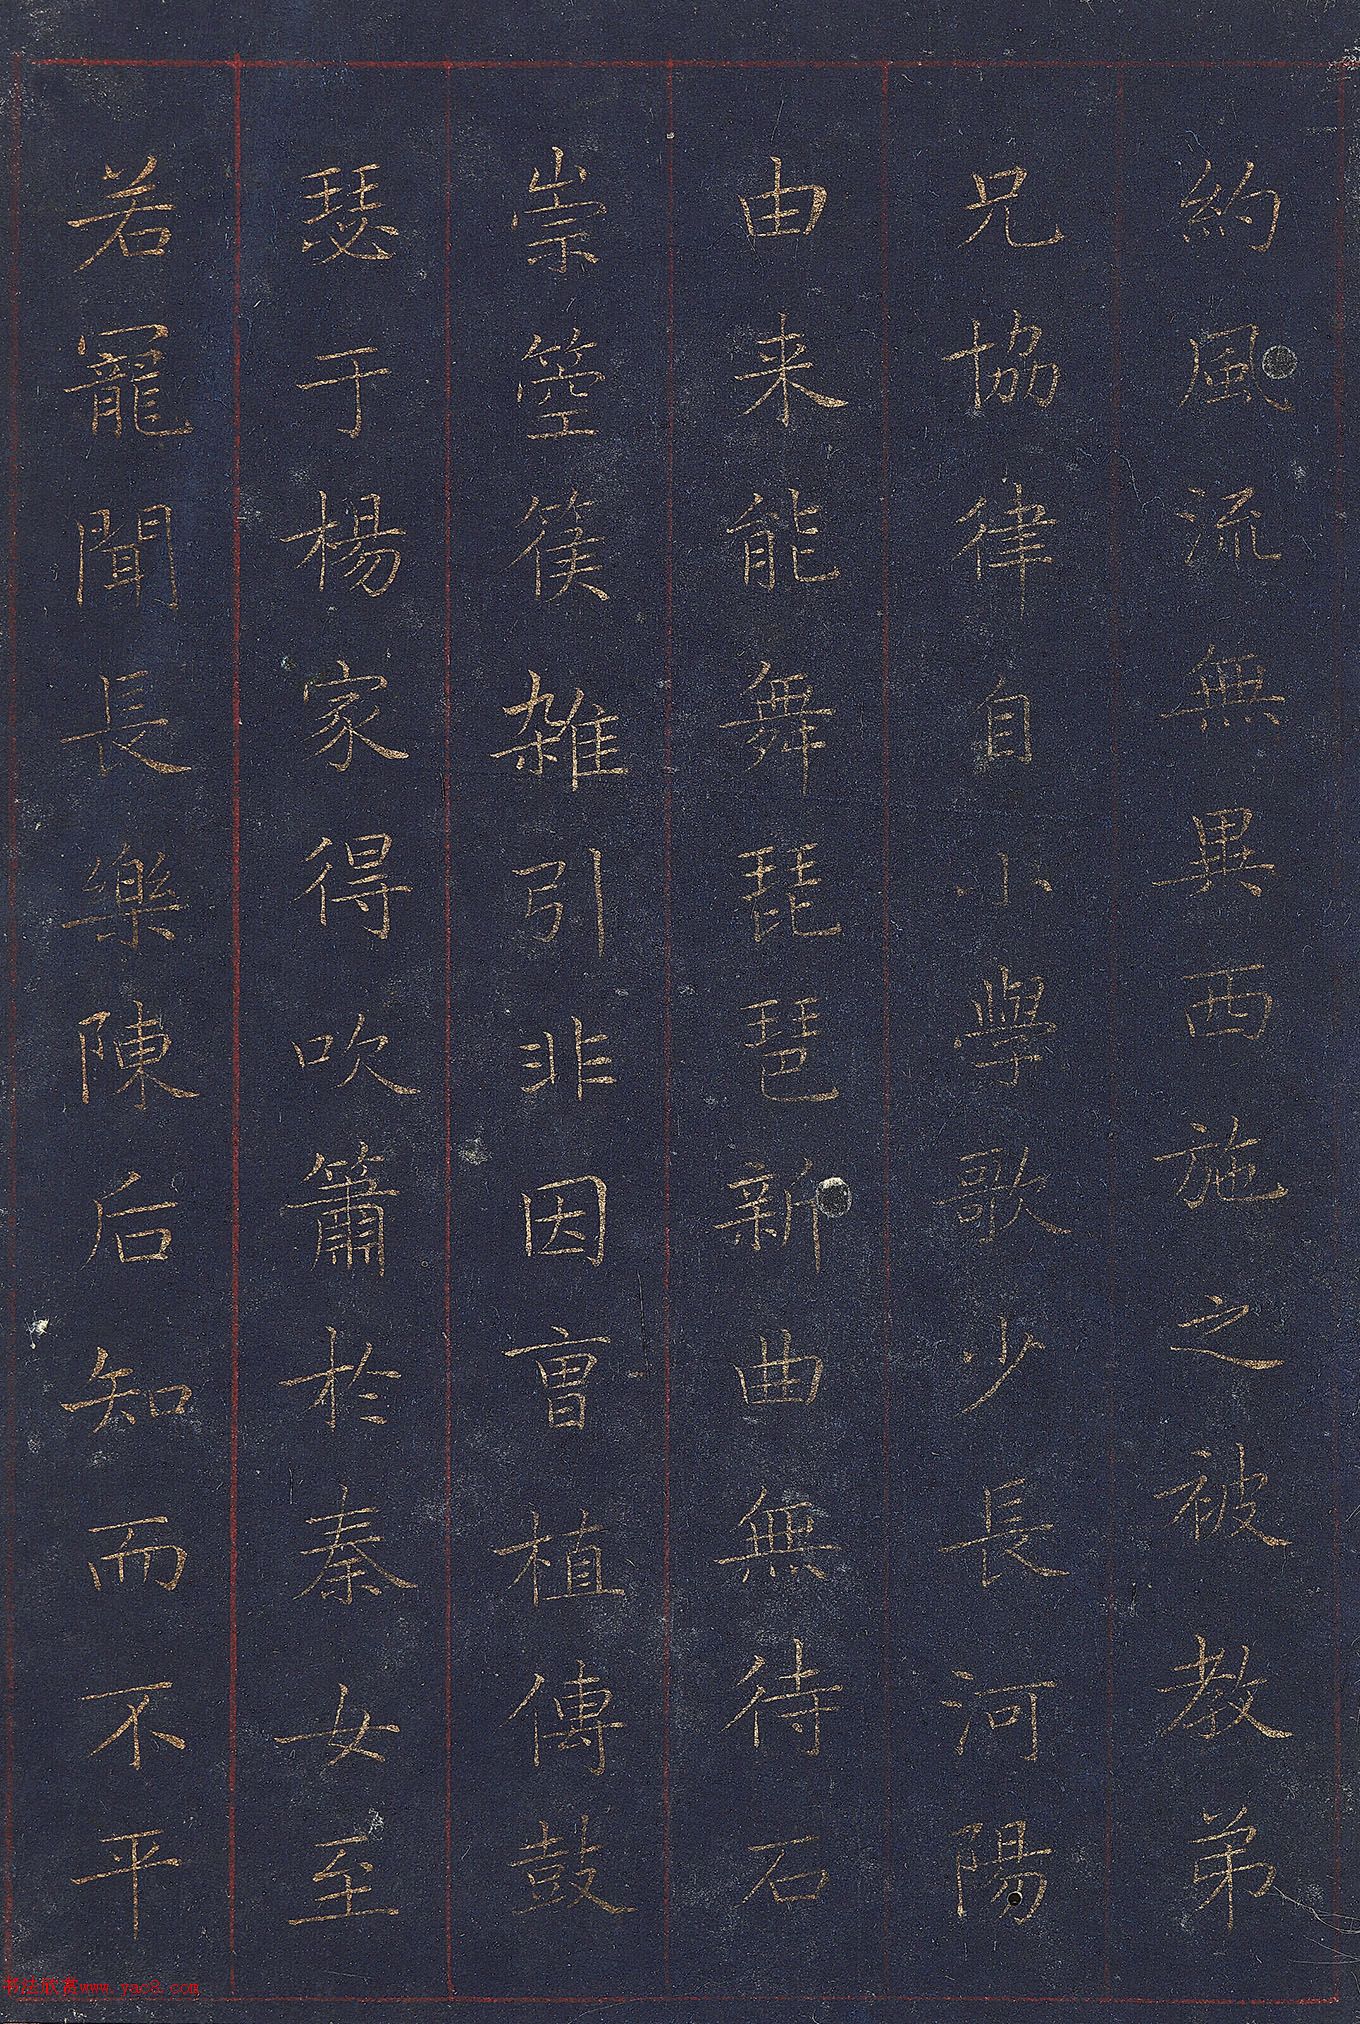 約風流無異西施之被教弟
兄協律自小學歌少長河陽
由来能舞琵琶新曲無待石
崇箜篌雑引非因曹植傳鼓
瑟于楊家得吹簫於秦女至
若寵聞長樂陳后知而不平
书法欣赏www.yac8.com